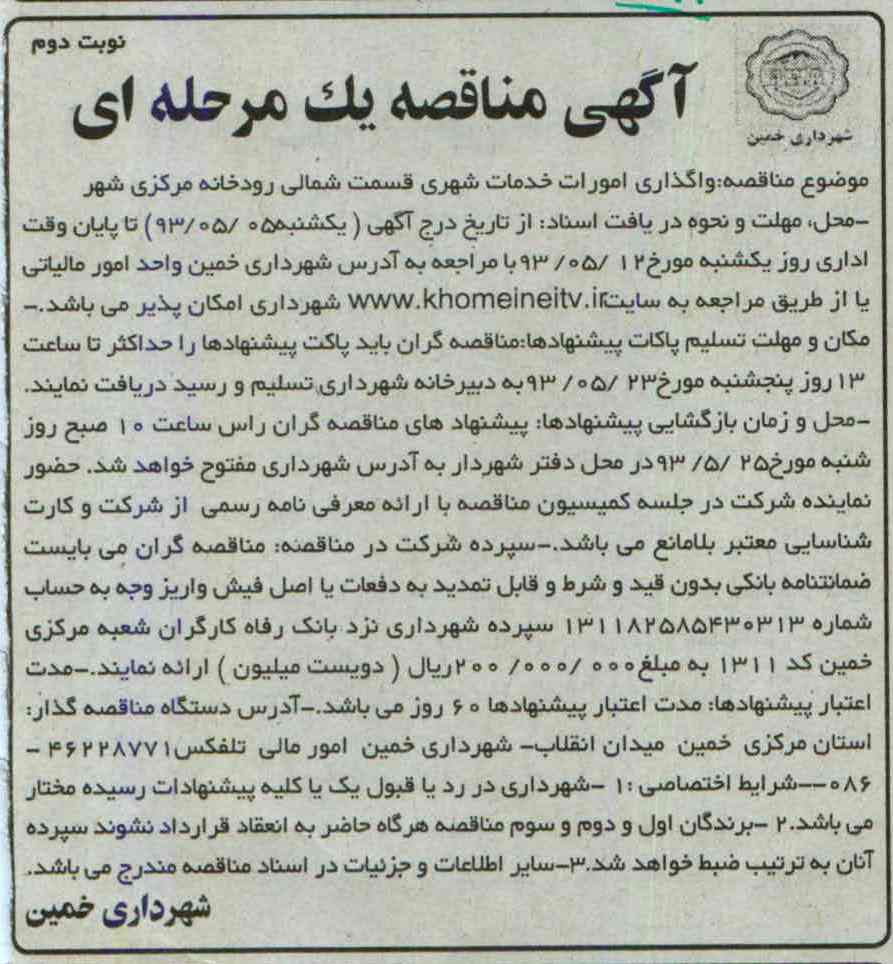 نوبت دوم
شهرداری خمین
آگهی مناقصه یك مرحله ای
موضوع مناقصه:واگذاری امورات خدمات شهری قسمت شمالی رودخانه مرکزی شهر
-محل، مهلت و نحوه در یافت اسناد: از تاریخ درج آگهی ( یکشنبه۰۵ /۹۳/۰۵) تا پایان وقت
اداری روز یکشنبه مورخ۱۲ /۰۵/ ۹۳با مراجعه به آدرس شهرداری خمین واحد امور مالیاتی
یا از طریق مراجعه به سایتwww.khomeineitv.ir شهرداری امکان پذیر می باشد.-
مکان و مهلت تسلیم پاکات پیشنهادها:مناقصه گران باید پاکت پیشنهادها را حداکثر تا ساعت
۱۳ روز پنجشنبه مورخ۲۳ /۰۵/ ۹۳به دبیرخانه شهرداری تسلیم و رسید دریافت نمایند.
-محل و زمان بازگشایی پیشنهادها: پیشنهاد های مناقصه گران راس ساعت ۱۰ صبح روز
شنبه مورخ۲۵ /۵/ ۹۳در محل دفتر شهردار به آدرس شهرداری مفتوح خواهد شد. حضور
نماینده شرکت در جلسه کمیسیون مناقصه با ارائه معرفی نامه رسمی از شرکت و کارت
شناسایی معتبر بلامانع می باشد.-سپرده شرکت در مناقصه: مناقصه گران می بایست
ضمانتنامه بانکی بدون قید و شرط و قابل تمدید به دفعات یا اصل فیش واریز وجه به حساب
شماره ۱۳۱۱۸۲۵۸۵۴۳۰۳۱۳ سپرده شهرداری نزد بانک رفاه کارگران شعبه مرکزی
خمین کد ۱۳۱۱ به مبلغ۰۰۰ /۰۰۰/ ۲۰۰ریال ( دویست میلیون ) ارائه نمایند.-مدت
اعتبار پیشنهادها: مدت اعتبار پیشنهادها ۶۰ روز می باشد.-آدرس دستگاه مناقصه گذار:
استان مرکزی خمین میدان انقلاب- شهرداری خمین امور مالی تلفکس۴۶۲۲۸۷۷۱ -
۰۸۶--شرایط اختصاصی :۱ -شهرداری در رد یا قبول یک یا کلیه پیشنهادات رسیده مختار
می باشد.۲ -برندگان اول و دوم و سوم مناقصه هرگاه حاضر به انعقاد قرارداد نشوند سپرده
آنان به ترتیب ضبط خواهد شد.۳-سایر اطلاعات و جزئیات در اسناد مناقصه مندرج می باشد.
شهرداری خمین